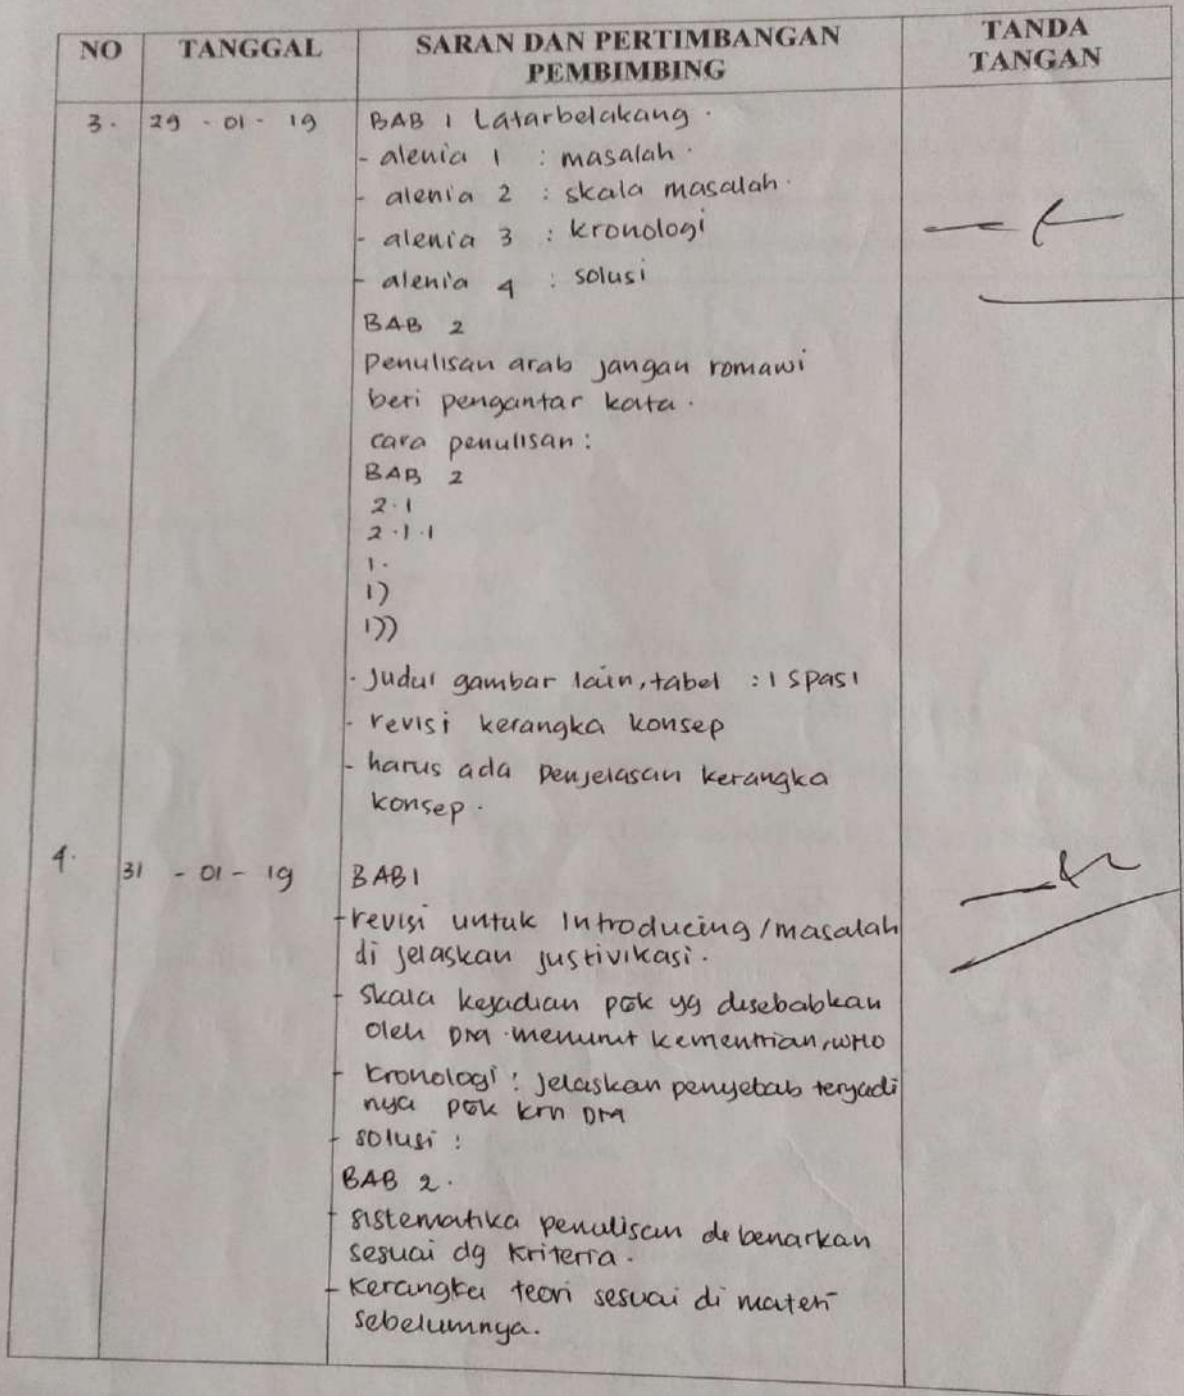 NO TANGGAL SARAN DAN PERTIMBANGAN PEMBIMBING TANDA TANGAN
3. 29 - 01 - 19 BAB 1 Latarbelakang.
- alenia 1 : masalah.
- alenia 2 : skala masalah.
- alenia 3 : kronologi
- alenia 4 : solusi
BAB 2
Penulisan arab jangan romawi
beri pengantar kata.
cara penulisan:
BAB 2
2.1
2.1.1
1.
1)
1))
- Judul gambar lain, tabel : 1 spasi
- revisi kerangka konsep
- harus ada penjelasan kerangka
konsep.
4. 31 - 01 - 19 BAB 1
- revisi untuk Introducing/masalah
di jelaskan justivikasi.
- Skala kejadian PGK yg disebabkan
oleh DM menurut kementrian, WHO
- kronologi : jelaskan penyebab terjadi
nya PGK krn DM
- solusi :
BAB 2.
- sistematika penulisan di benarkan
sesuai dg kriteria.
- kerangka teori sesuai di materi
sebelumnya.